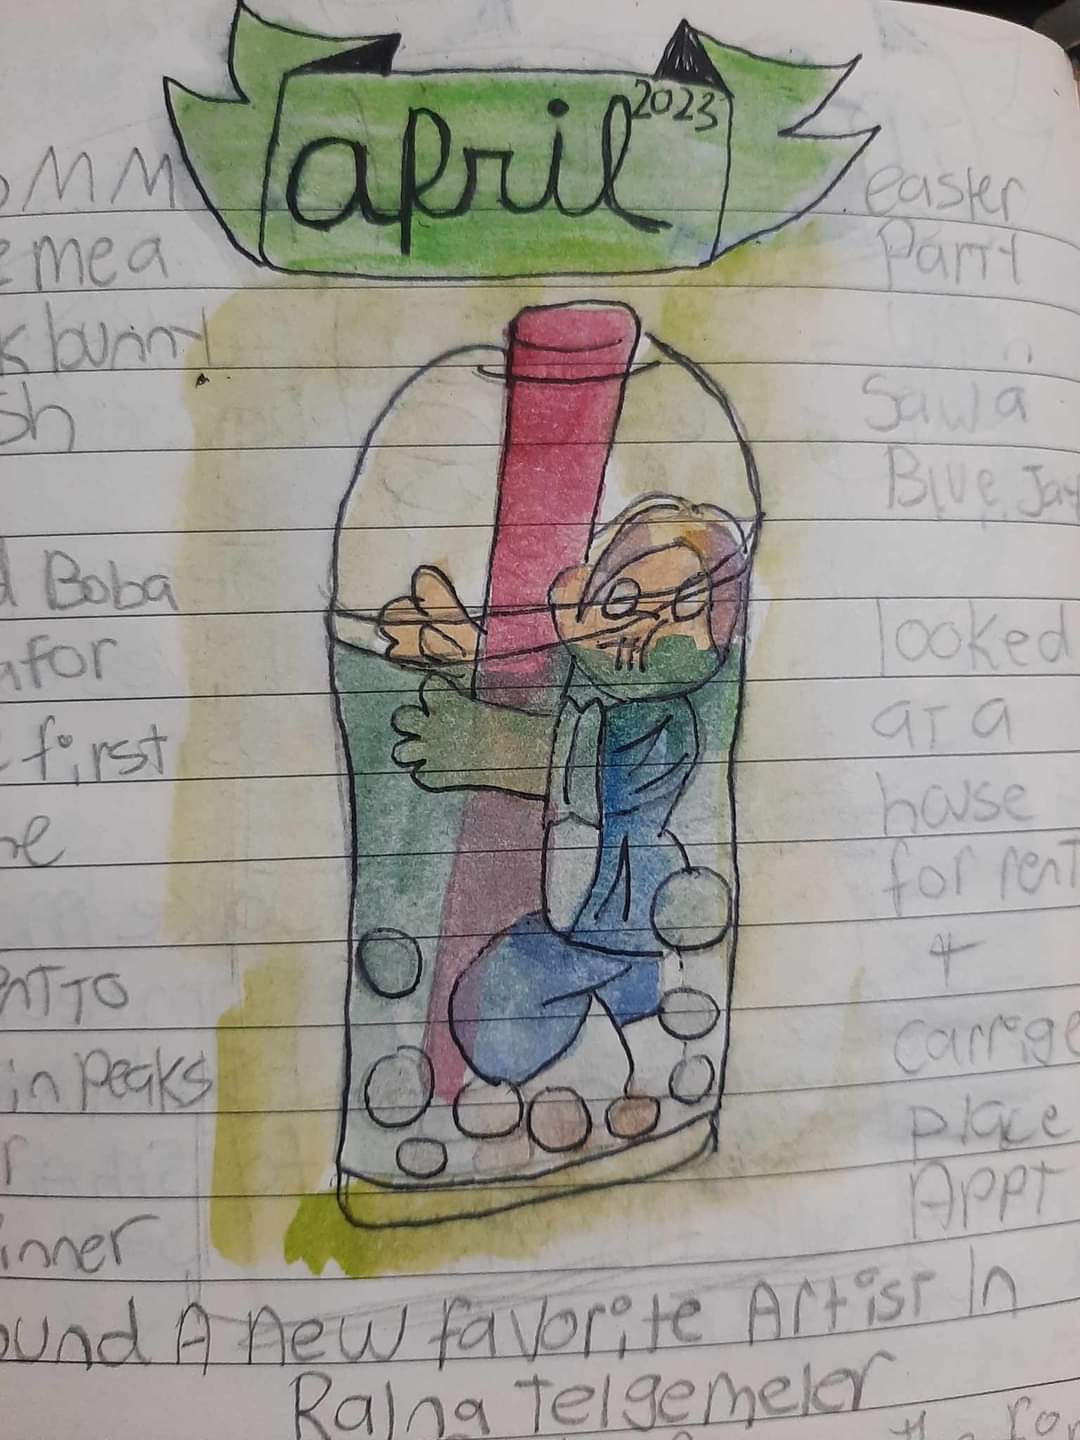 april 2023
MM
mea
bunny
sh
Boba
for
first
he
TO
in peaks
r
inner
ound A new favorite Artist In
Raina Telgemeier
easter
Parrt
Saw a
Blue Jay
looked
at a
house
for rent
+
carrige
place
APPT
the for